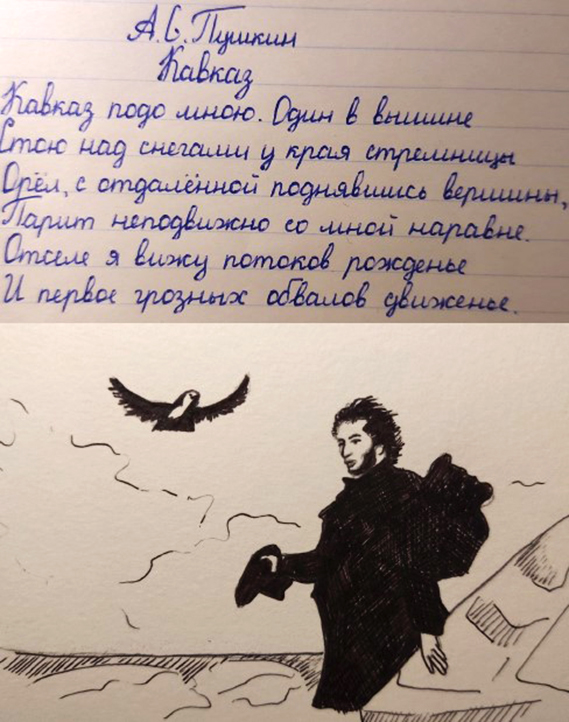 А.С. Пушкин
Кавказ
Кавказ подо мною. Один в вышине
Стою над снегами у края стремнины
Орёл, с отдалённой поднявшись вершины,
Парит неподвижно со мной наравне.
Отселе я вижу потоков рожденье
И первое грозных обвалов движенье.